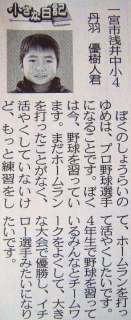 小さな日記
一宮市浅井中小4
丹羽 優樹人君
ぼくのしょうらいの
ゆめは、プロ野球選手
になることです。ぼく
は今、野球を習ってい
ます。まだホームラン
を打ったことがなく、
活やくしていないけ
ど、もっと練習をし
て、ホームランを打っ
て活やくしたいです。
4年生で野球を習って
いるみんなとチームワ
ークをよくして、大き
な大会で優勝し、イチ
ロー選手みたいになり
たいです。